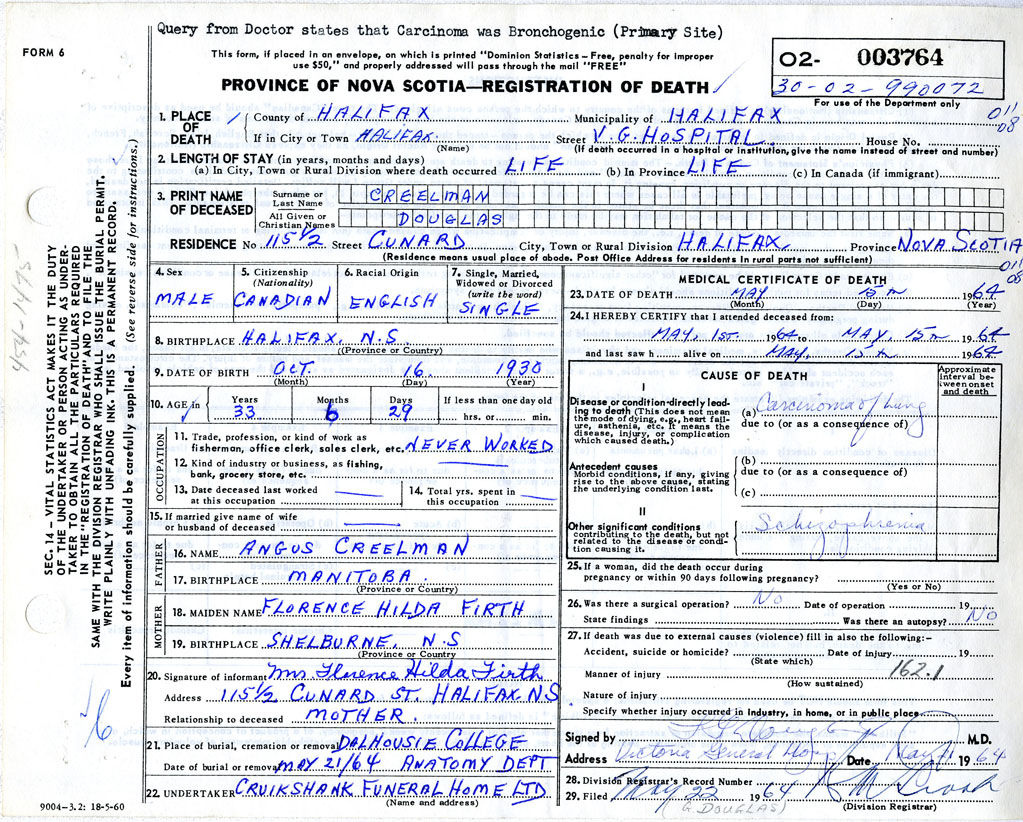 Query from Doctor states that Carcinoma was Bronchogenic (Primary Site)
FORM 6
This form, if placed in an envelope, on which is printed "Dominion Statistics – Free, penalty for improper
use $50," and properly addressed will pass through the mail "FREE"
02- 003764
30-02-990072
For use of the Department only
PROVINCE OF NOVA SCOTIA—REGISTRATION OF DEATH
1. PLACE OF DEATH County of HALIFAX Municipality of HALIFAX 011/08
If in City or Town HALIFAX. Street V.G. HOSPITAL House No.
(Name) (If death occurred in a hospital or institution, give the name instead of street and number)
2. LENGTH OF STAY (in years, months and days)
(a) In City, Town or Rural Division where death occurred LIFE (b) In Province LIFE (c) In Canada (if immigrant)
3. PRINT NAME OF DECEASED Surname or Last Name CREELMAN
All Given or Christian Names DOUGLAS
RESIDENCE No. 115½ Street CUNARD City, Town or Rural Division HALIFAX Province NOVA SCOTIA
(Residence means usual place of abode. Post Office Address for residents in rural parts not sufficient)
011/08
4. Sex MALE
5. Citizenship (Nationality) CANADIAN
6. Racial Origin ENGLISH
7. Single, Married, Widowed or Divorced (write the word) SINGLE
8. BIRTHPLACE HALIFAX, N.S.
(Province or Country)
9. DATE OF BIRTH OCT. 16 1930
(Month) (Day) (Year)
10. AGE in Years 33 Months 6 Days 29 If less than one day old hrs. or min.
OCCUPATION
11. Trade, profession, or kind of work as
fisherman, office clerk, sales clerk, etc. NEVER WORKED
12. Kind of industry or business, as fishing,
bank, grocery store, etc.
13. Date deceased last worked
at this occupation
14. Total yrs. spent in
this occupation
15. If married give name of wife
or husband of deceased
FATHER
16. NAME ANGUS CREELMAN
17. BIRTHPLACE MANITOBA.
(Province or Country)
MOTHER
18. MAIDEN NAME FLORENCE HILDA FIRTH
19. BIRTHPLACE SHELBURNE, N.S
(Province or Country)
20. Signature of informant Mrs. Florence Hilda Firth
Address 115½ CUNARD ST. HALIFAX NS
Relationship to deceased MOTHER.
21. Place of burial, cremation or removal DALHOUSIE COLLEGE
Date of burial or removal MAY 21/64 ANATOMY DEPT
22. UNDERTAKER CRUIKSHANK FUNERAL HOME LTD
(Name and address)
9004-3.2: 18-5-60
MEDICAL CERTIFICATE OF DEATH
23. DATE OF DEATH MAY 15TH 1964
(Month) (Day) (Year)
24. I HEREBY CERTIFY that I attended deceased from:
MAY, 1ST. 1964 to MAY, 15TH 1964
and last saw h alive on MAY, 15TH 1964
CAUSE OF DEATH
Approximate interval between onset and death
I
Disease or condition directly leading
to death (This does not mean
the mode of dying, e.g., heart failure,
asthenia, etc. It means the
disease, injury, or complication
which caused death.)
(a) Carcinoma of Lung
due to (or as a consequence of)
Antecedent causes
Morbid conditions, if any, giving
rise to the above cause, stating
the underlying condition last.
(b)
due to (or as a consequence of)
(c)
II
Other significant conditions
contributing to the death, but not
related to the disease or condition
causing it.
Schizophrenia
25. If a woman, did the death occur during
pregnancy or within 90 days following pregnancy?
(Yes or No)
26. Was there a surgical operation? No Date of operation 19
State findings Was there an autopsy? No
27. If death was due to external causes (violence) fill in also the following:–
Accident, suicide or homicide? Date of injury 19
(State which)
Manner of injury 162.1
(How sustained)
Nature of injury
Specify whether injury occurred in Industry, in home, or in public place
Signed by M.D.
Address Victoria General Hosp Date May 1964
28. Division Registrar's Record Number
29. Filed May 22 1964
(G. DOUGLAS) (Division Registrar)
SEC. 14 – VITAL STATISTICS ACT MAKES IT THE DUTY
OF THE UNDERTAKER OR PERSON ACTING AS UNDERTAKER
TO OBTAIN ALL THE PARTICULARS REQUIRED
IN THE "REGISTRATION OF DEATH" AND TO FILE THE
SAME WITH THE DIVISION REGISTRAR WHO SHALL ISSUE THE BURIAL PERMIT.
WRITE PLAINLY WITH UNFADING INK. THIS IS A PERMANENT RECORD.
Every item of information should be carefully supplied. (See reverse side for instructions.)
454-1475
6